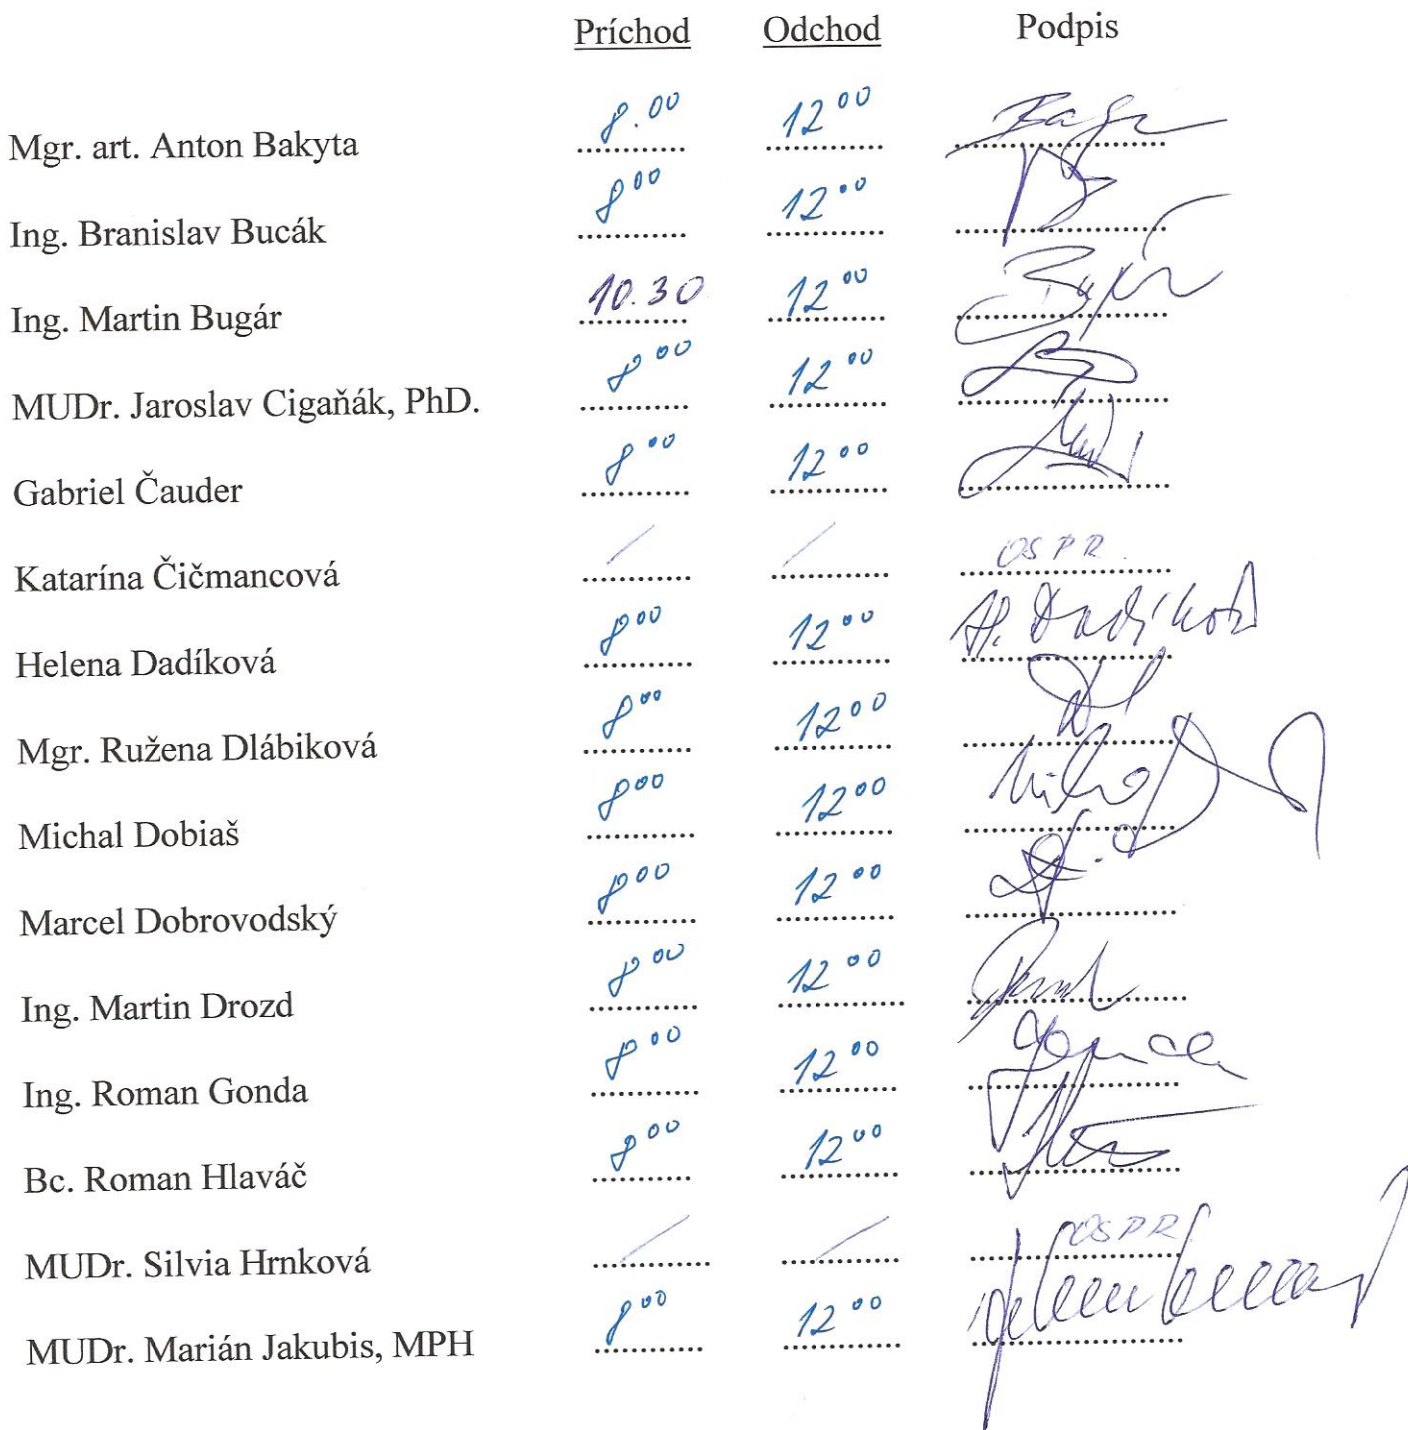 Príchod Odchod Podpis
Mgr. art. Anton Bakyta 8.00 12 00
Ing. Branislav Bucák 8 00 12 00
Ing. Martin Bugár 10.30 12 00
MUDr. Jaroslav Cigaňák, PhD. 8 00 12 00
Gabriel Čauder 8 00 12 00
Katarína Čičmancová / / OSPR.
Helena Dadíková 8 00 12 00 H. Dadíková
Mgr. Ružena Dlábiková 8 00 12 00
Michal Dobiaš 8 00 12 00
Marcel Dobrovodský 8 00 12 00
Ing. Martin Drozd 8 00 12 00
Ing. Roman Gonda 8 00 12 00
Bc. Roman Hlaváč 8 00 12 00
MUDr. Silvia Hrnková / / OSPR
MUDr. Marián Jakubis, MPH 8 00 12 00